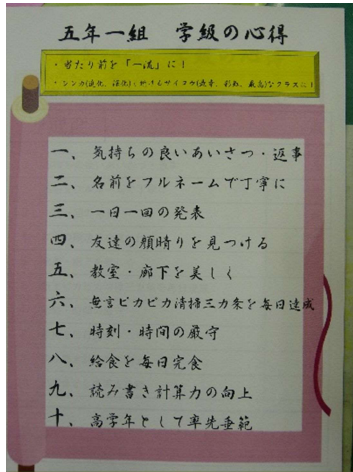 五年一組 学級の心得
・当たり前を「一流」に!
一、気持ちの良いあいさつ・返事
二、名前をフルネームで丁寧に
三、一日一回の発表
四、友達の顔晴りを見つける
五、教室・廊下を美しく
六、無言ピカピカ清掃三カ条を毎日達成
七、時刻・時間の厳守
八、給食を毎日完食
九、読み書き計算力の向上
十、高学年として率先垂範